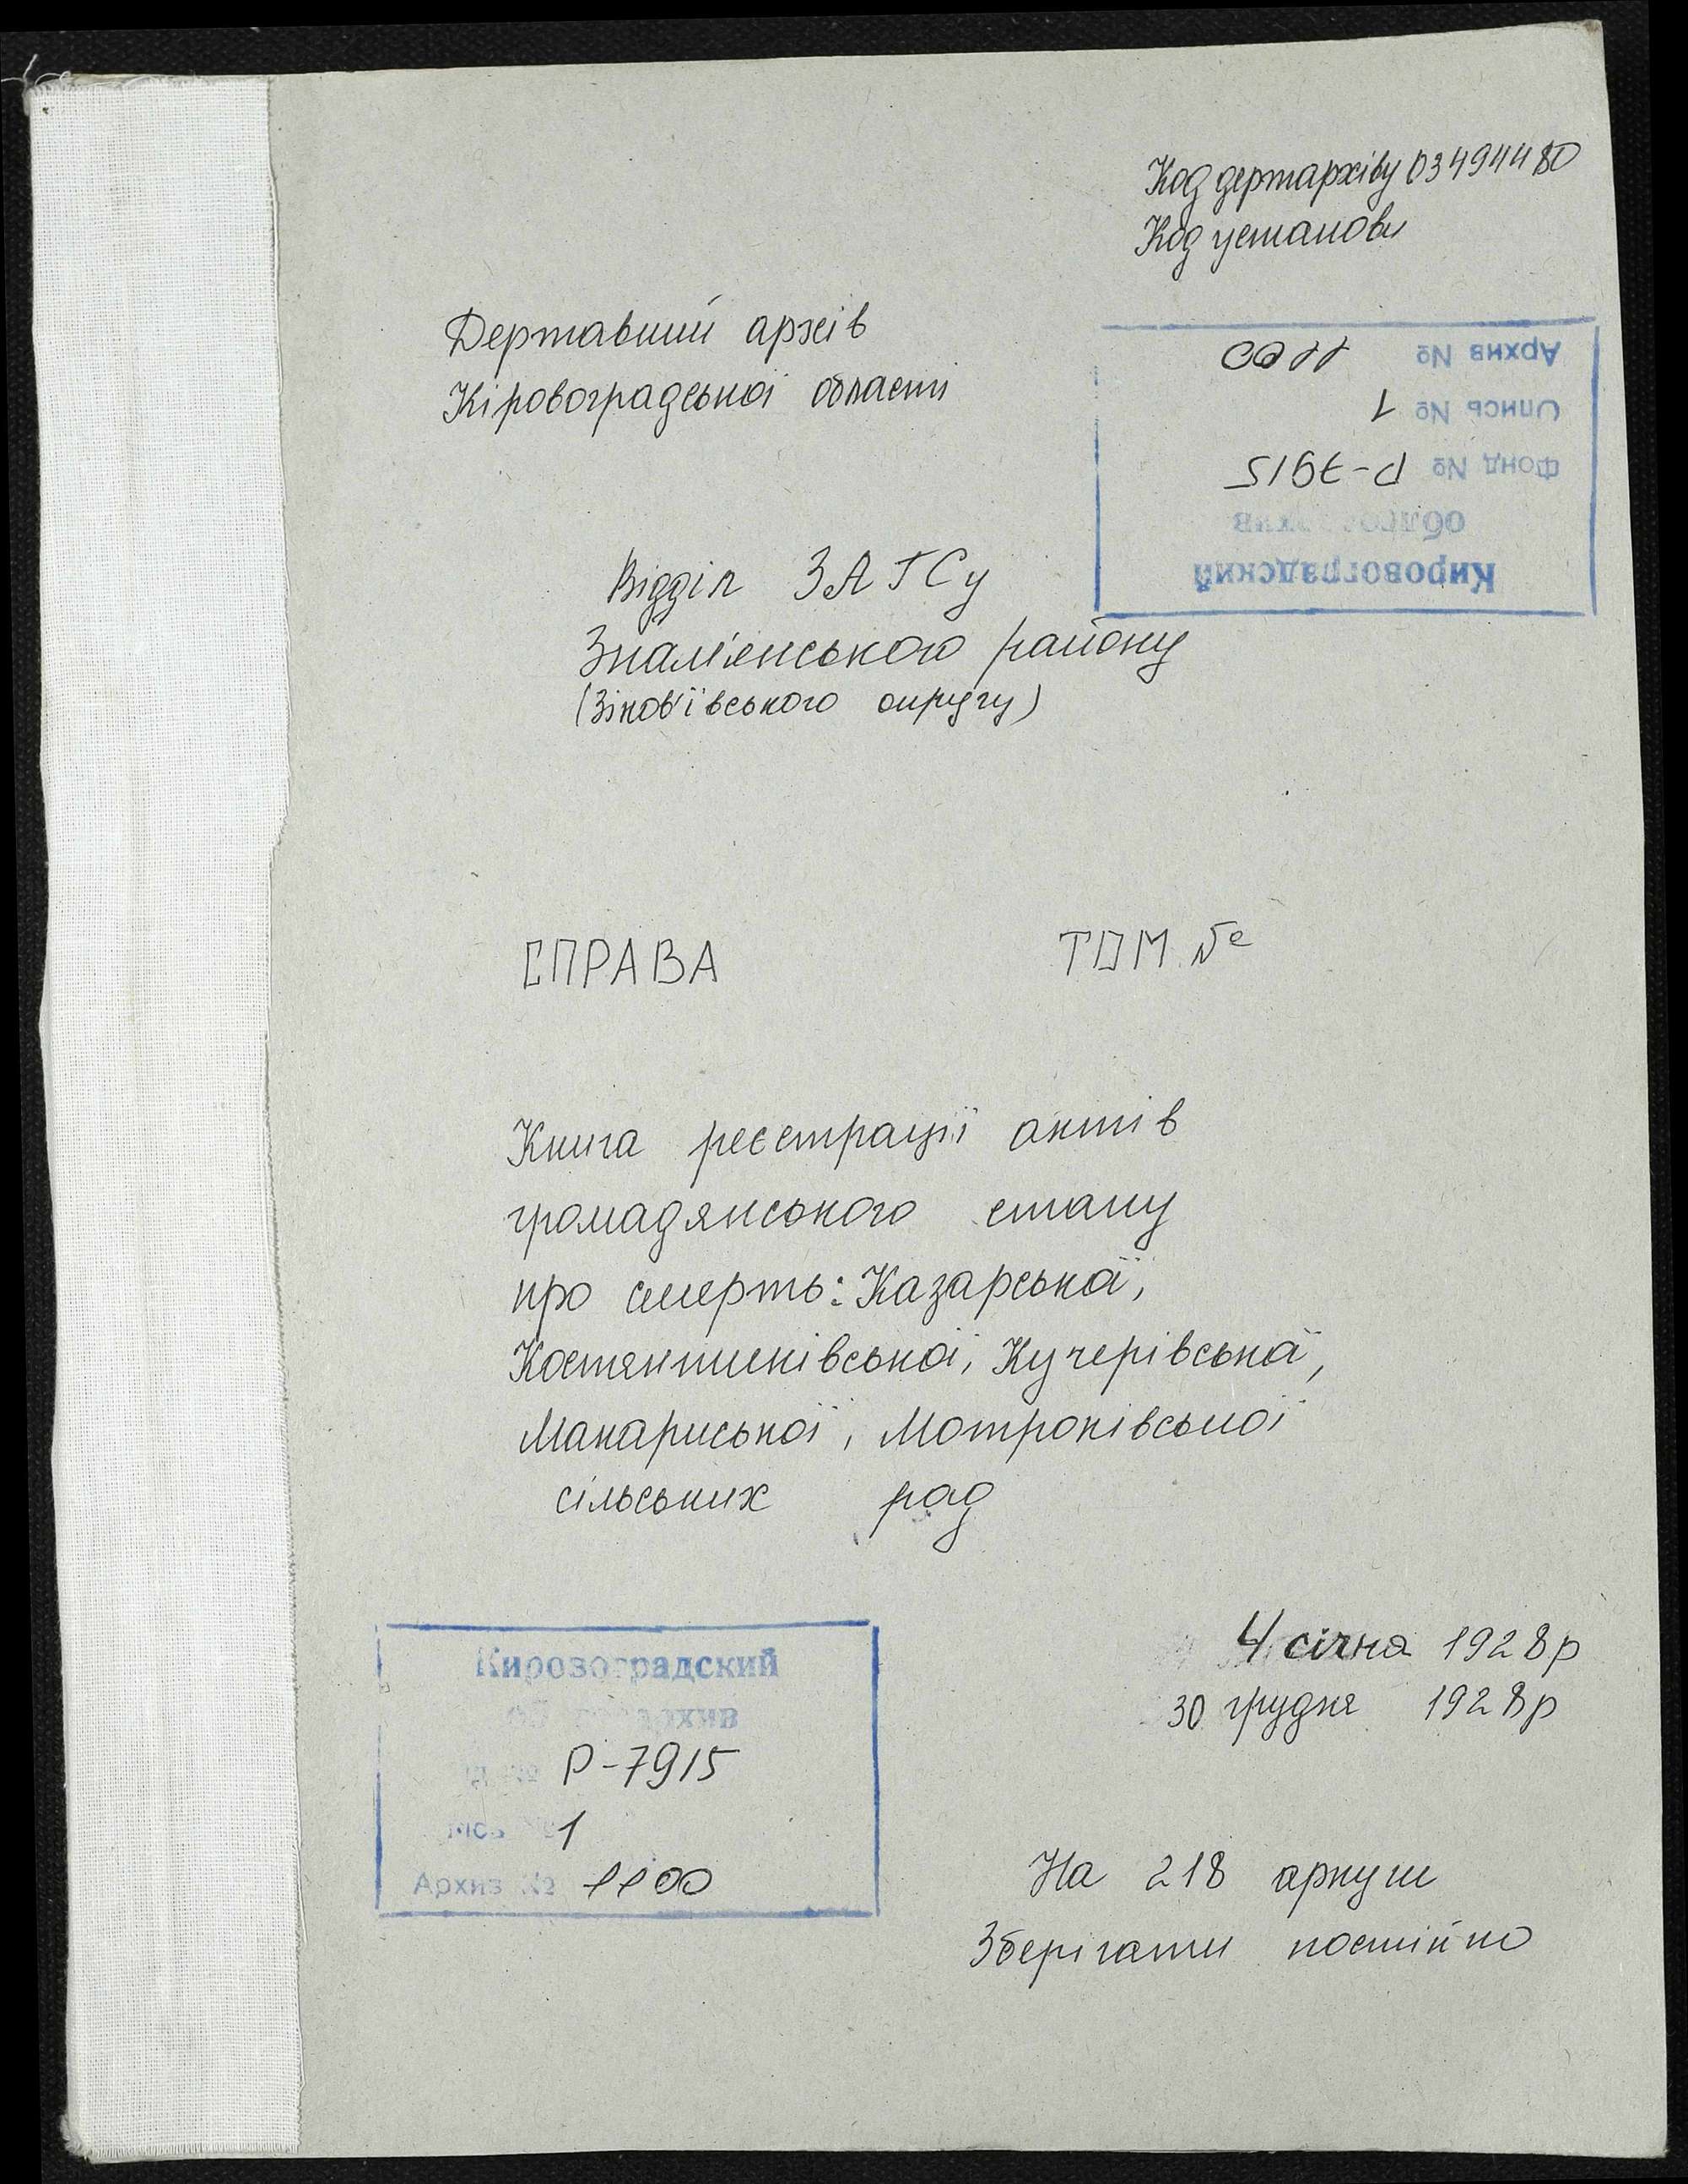 Код держархіву 03494480
Код установи
Державний архів
Кіровоградської області
Архив № 1100
Опись № 1
Фонд № Р-7915
облгосархив
Кировоградский
Відділ ЗАГСу
Знам'янського району
(Зінов'ївського округу)
СПРАВА ТОМ №
Книга реєстрації актів
громадянського стану
про смерть: Казарської,
Костянтинівської, Кучерівської,
Макариської, Мотронівської
сільських рад
4 січня 1928р
30 грудня 1928р
Кировоградский
облгосархив
Р-7915
1
Архив № 1100
На 218 аркуш
Зберігати постійно